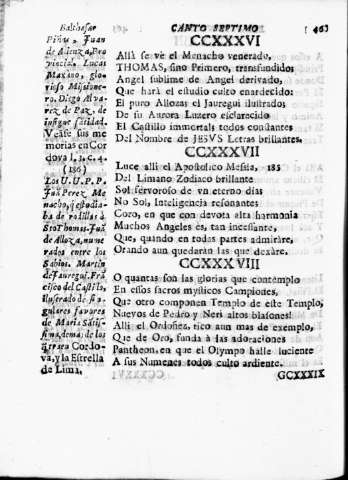 Balthasar
CANTO SEPTIMO
(46)
Piñas, Juan
de Atienza, Pro
vincia. Lucas
Maxano, glo-
rioso Missione-
ro, Diego Alva-
rez de Paz, de
insigne santidad.
Vease sus me
morias en Cor
dova l. 1. c. 4.
(186)
Los U. U. P. P.
Juã Perez Me
nacho, q̃ estudia-
ba de rodillas à
Sto Thomas. Juã
de Alloza, nume
rados entre los
Sabios. Martin
de Jauregui. Frã
cisco del Castillo,
ilustrado de sin-
gulares favores
de Maria Sãtis-
sima, demàs de los
Cordo-
va, y la Estrella
de Lima.
CCXXXVI
Allà se vè el Menacho venerado,
THOMAS, sino Primero, transfundido;
Angel sublime de Angel derivado,
Que harà el estudio culto enardecido:
El puro Allozas el Jauregui ilustrado;
De su Aurora Luzero esclarecido
El Castillo immortal; todos constantes
Del Nombre de JESVS Letras brillantes.
CCXXXVII
Luce alli el Apostolico Messia, 185
Del Limano Zodiaco brillante
Sol fervoroso de vn eterno dias
No Sol, Inteligencia resonante:
Coro, en que con devota alta harmonia
Muchos Angeles es, tan incessante,
Que, quando en todas partes admiràre,
Orando aun quedaràn las que dexàre.
CCXXXVIII
O quantas son las glorias que contemplo
En essos sacros mysticos Campiones,
Que otro componen Templo de este Templo,
Nuevos de Pedro y Neri altos blasones!
Alli el Ordoñez, rico aun mas de exemplo,
Que de Oro, funda à las adoraciones
Pantheon, en que el Olympo halle luciente
A sus Numenes todos culto ardiente.
GCXXXIX